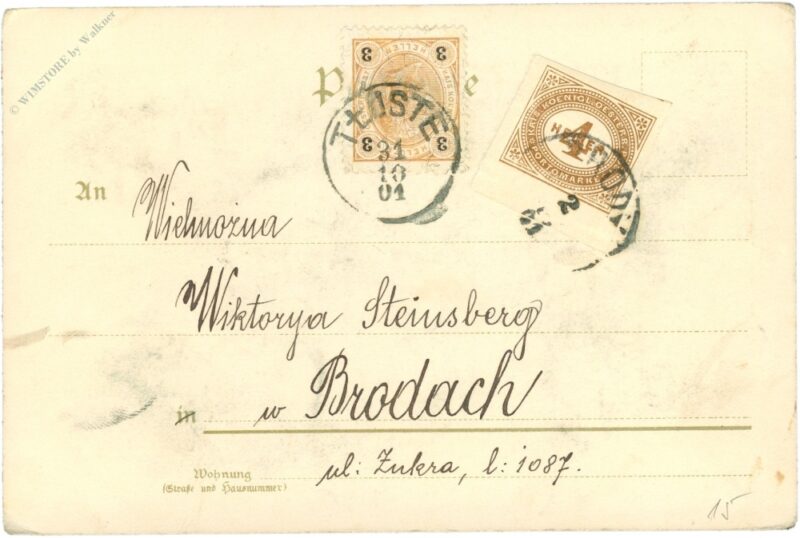 © WIMSTORE by Walkner
3 3
HELLER
3 3
TŁUSTE
31
10
01
KAIS. KOENIGL. OESTERR.
4
HELLER
PORTOMARKE
BRODY
2
An
Wielmożna
Wiktorya Steinsberg
in w Brodach
Wohnung
(Straße und Hausnummer)
ul: Żukra, l: 1087.
15